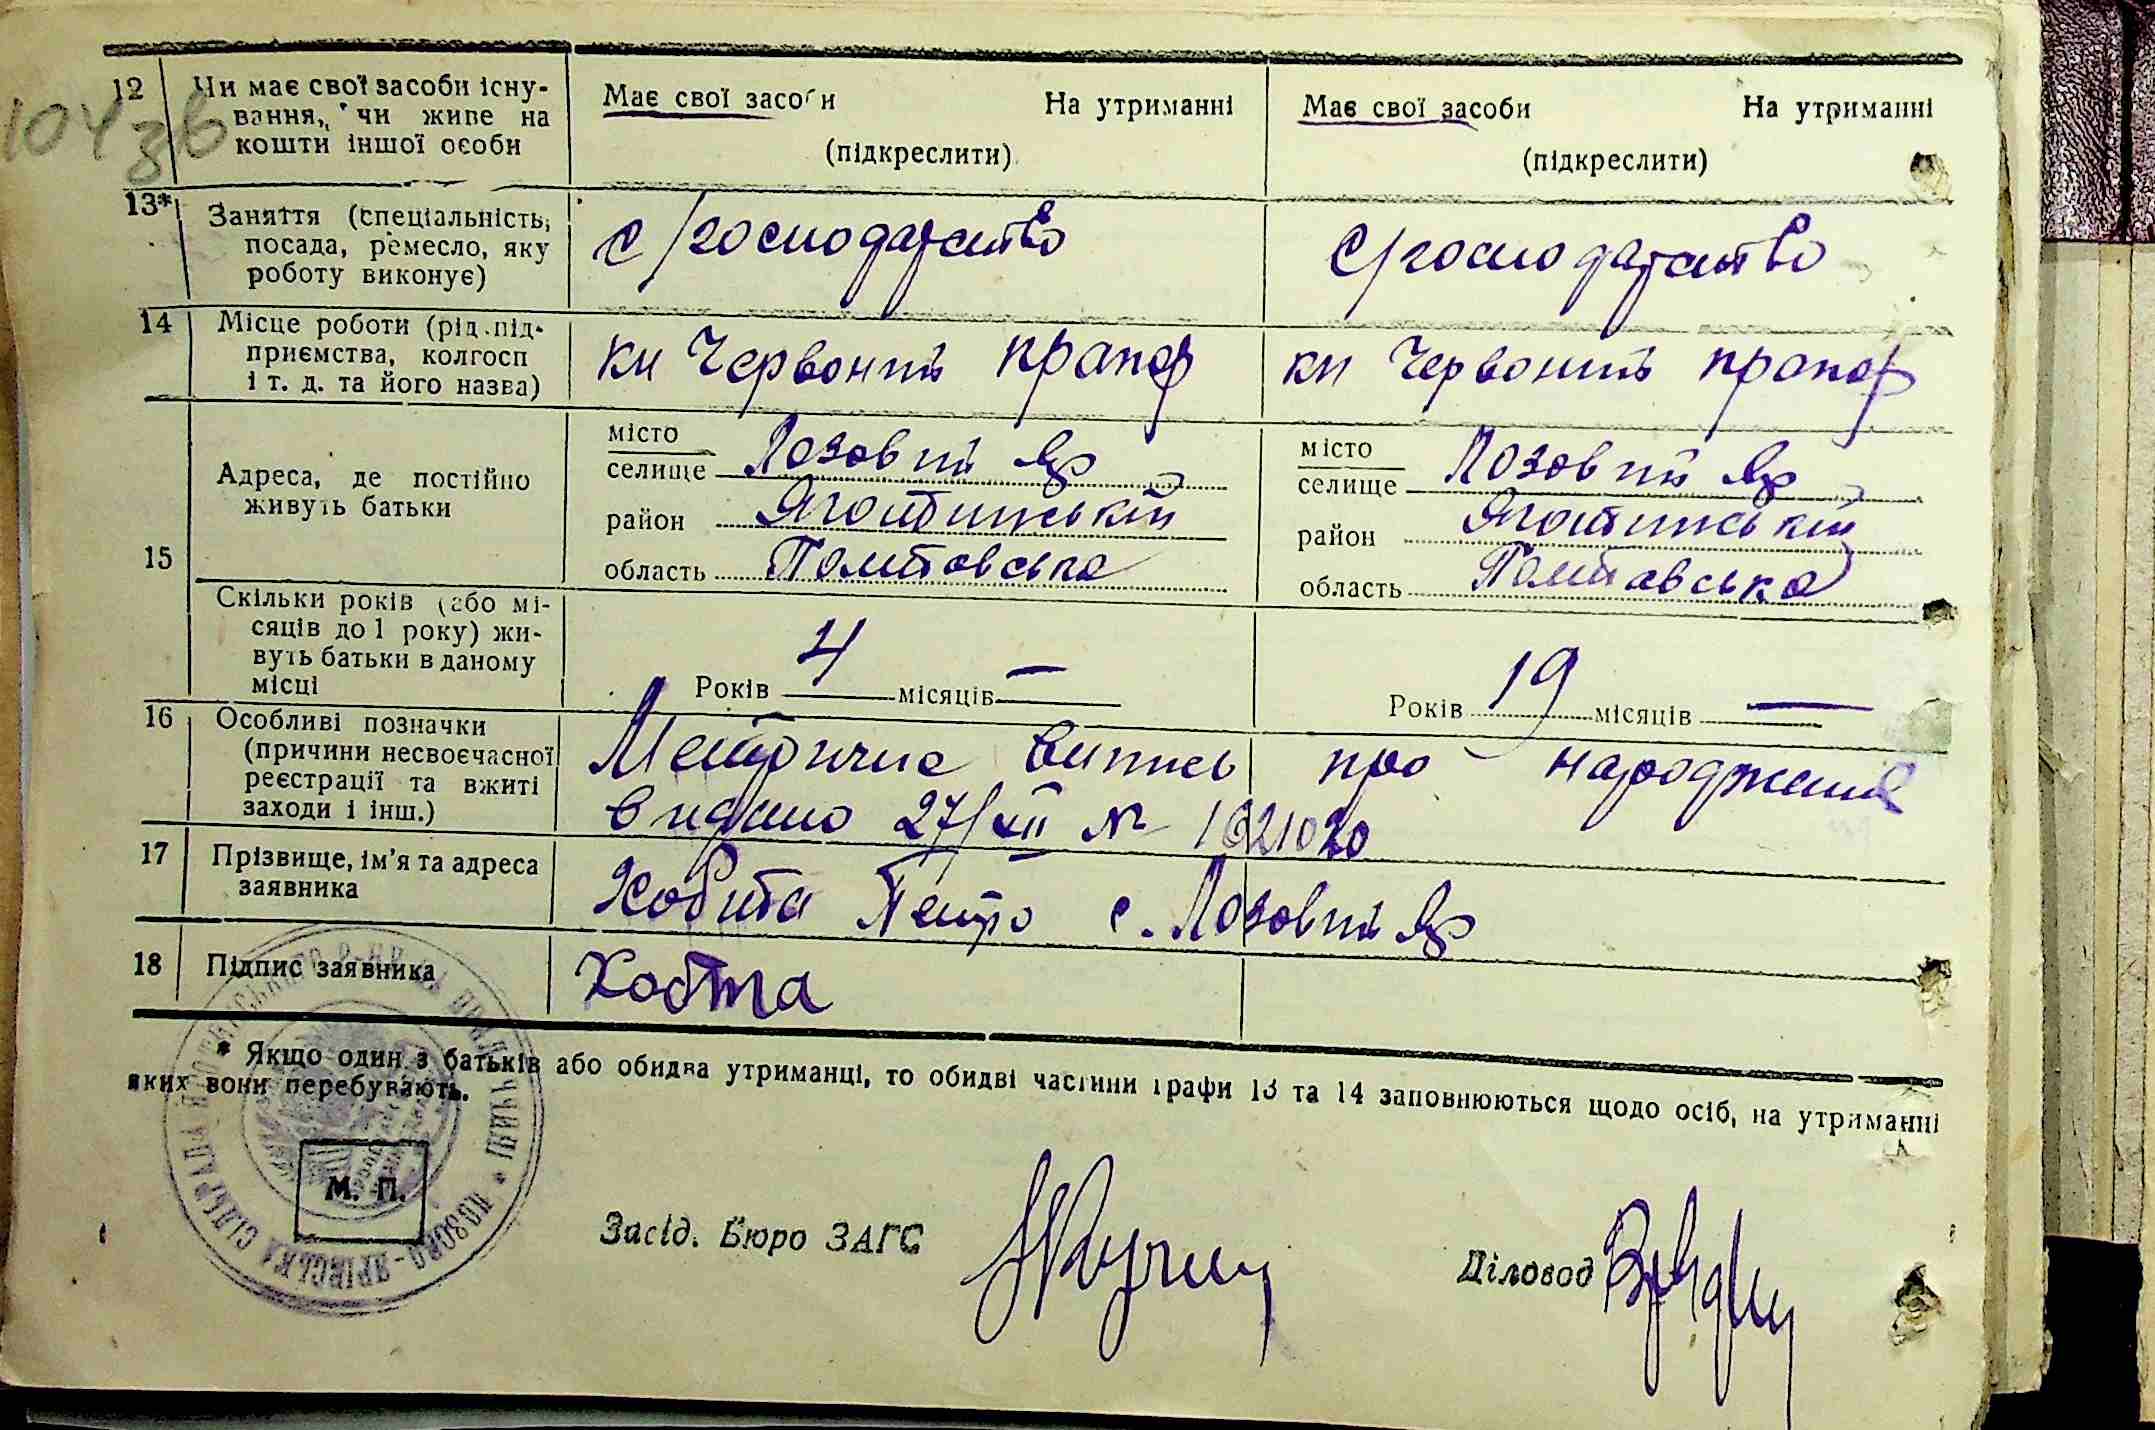 104 зв
12 Чи має свої засоби існу-
вання, чи живе на
кошти іншої особи
Має свої засоби На утриманні
(підкреслити)
Має свої засоби На утриманні
(підкреслити)
13* Заняття (спеціальність,
посада, ремесло, яку
роботу виконує)
с/господарство
с/господарство
14 Місце роботи (рід під-
приємства, колгосп
і т. д. та його назва)
кп Червоний прапор
кп Червоний прапор
15
Адреса, де постійно
живуть батьки
місто
селище Лозовий Яр
район Яготинський
область Полтавська
місто
селище Лозовий Яр
район Яготинський
область Полтавська
Скільки років (або мі-
сяців до 1 року) жи-
вуть батьки в даному
місці
Років 4 місяців —
Років 19 місяців —
16 Особливі позначки
(причини несвоєчасної
реєстрації та вжиті
заходи і інш.)
Метрична випись про народження
видано 27/XII № 1621020
17 Прізвище, ім'я та адреса
заявника
Хобта Петро с. Лозовий Яр
18 Підпис заявника
Хобта
* Якщо один з батьків або обидва утриманці, то обидві частини графи 13 та 14 заповнюються щодо осіб, на утриманні
яких вони перебувають.
М. П.
ЛОЗОВО-ЯРІВСЬКА СІЛЬРАДА
Засід. Бюро ЗАГС
Діловод